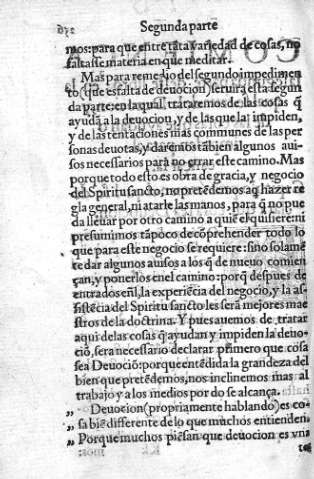 Segunda parte
mos: para que entre tãta variedad de cosas, no
faltasse materia en que meditar.
Mas para remedio del segundo impedimen
to (que es falta de deuocion) seruirà esta segun
da parte: en la qual trataremos de las cosas q̃
ayudã a la deuocion, y de las que la impiden,
y de las tentaciones mas communes de las per
sonas deuotas, y daremos tãbien algunos aui-
sos necessarios para no errar este camino. Mas
porque todo esto es obra de gracia, y negocio
del Spiritu sancto, no pretẽdemos aq̃ hazer re
gla general, ni atarle las manos, para q̃ no pue
da lleuar por otro camino a quiẽ el quisiere: ni
presumimos tãpoco de cõprehender todo lo
que para este negocio se requiere: sino solamẽ
te dar algunos auisos a los q̃ de nueuo comien
çan, y ponerlos en el camino: porq̃ despues de
entrados en el, la experiẽcia del negocio, y la as-
sistẽcia del Spiritu sancto les serã mejores mae
stros de la doctrina. Y pues auemos de tratar
aqui de las cosas q̃ ayudan y impiden la deuo-
ciõ, sera necessario declarar primero que cosa
sea Deuociõ: porque entẽdida la grandeza del
bien que pretẽdemos, nos inclinemos mas al
trabajo y a los medios por do se alcança.
„ Deuocion (propriamente hablando) es co-
„ sa biẽ differente de lo que muchos entienden.
„ Porque muchos piẽsan que deuocion es vna